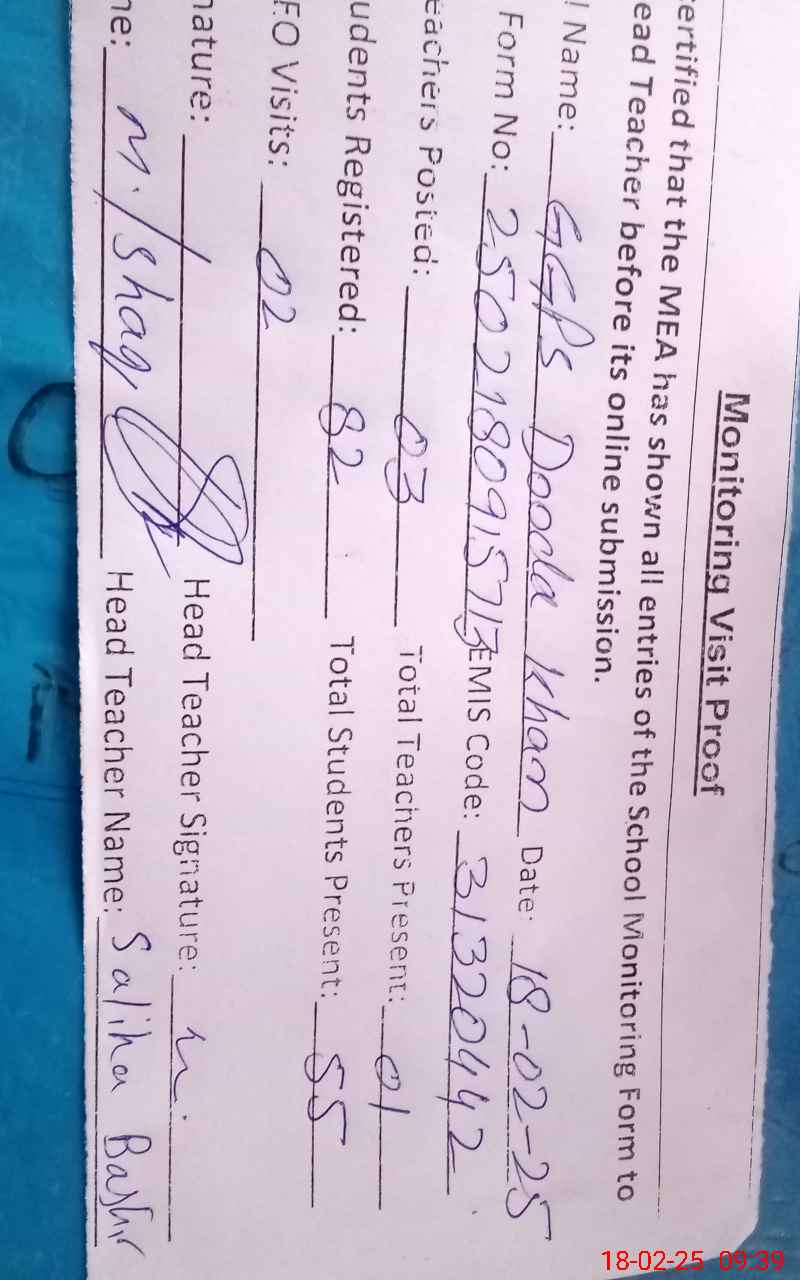 Monitoring Visit Proof
ertified that the MEA has shown all entries of the School Monitoring Form to
ead Teacher before its online submission.
l Name: GGPS Dooda Khan Date: 18-02-25
Form No: 2502180915713 EMIS Code: 31320442
eachers Posted: 03 Total Teachers Present: 01
udents Registered: 82 Total Students Present: 55
EO Visits: 02
nature: Head Teacher Signature:
ne: M. Ishaq Head Teacher Name: Saliha Bashir
18-02-25 09:39